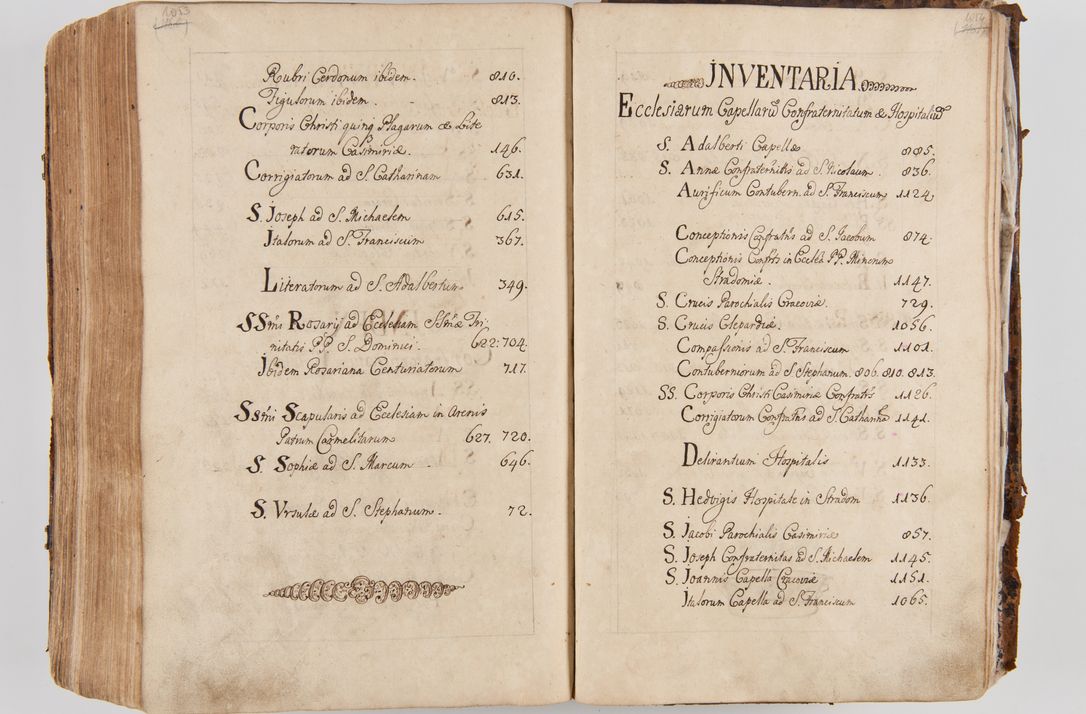 1053
Rubri Cerdonum ibidem. 810.
Figulorum ibidem. 813.
Corporis Christi quinq Plagarum & Lite
ratorum Casimiriæ. 146.
Corrigiatorum ad S. Catharinam 631.
S. Joseph ad S. Michaelem 615.
Italorum ad S. Franciscum 367.
Literatorum ad S. Adalbertum 349.
SSmi Rosarij ad Ecclesiam SSmæ Tri
nitatis PP. S. Dominici. 622: 704.
Ibidem Rosariana Centuriatorum 717.
SSmi Scapularis ad Ecclesiam in Arenis
Patrum Carmelitarum 627. 720.
S. Sophiæ ad S. Marcum 646.
S. Vrsulæ ad S. Stephanum. 72.
1054
INVENTARIA
Ecclesiarum Capellarũ Confraternitatum & Hospitaliũ
S. Adalberti Capellæ 885.
S. Annæ Confraternittis ad S. Nicolaum. 836.
Aurificum Contubern. ad S. Franciscum 1124
Conceptionis Confratnis ad S. Jacobum 874.
Conceptionis Confrtis in Ecclea PP. Minorum
Stradomiæ. 1147.
S. Crucis Parochialis Cracoviæ. 729.
S. Crucis Clepardiæ. 1056.
Compassionis ad S. Franciscum 1101.
Contuberniorum ad S. Stephanum. 806. 810. 813.
SS. Corporis Christi Casimiriæ Confratis 1126.
Corrigiatorum Confratnis ad S. Cathannæ 1141.
Delirantium Hospitalis 1133.
S. Hedvigis Hospitale in Stradom 1136.
S. Jacobi Parochialis Casimiriæ 857.
S. Joseph Confraternitas ad S. Michaelem 1145.
S. Joannis Capella Cracoviæ 1151.
Italorum Capella ad S. Franciscum 1065.